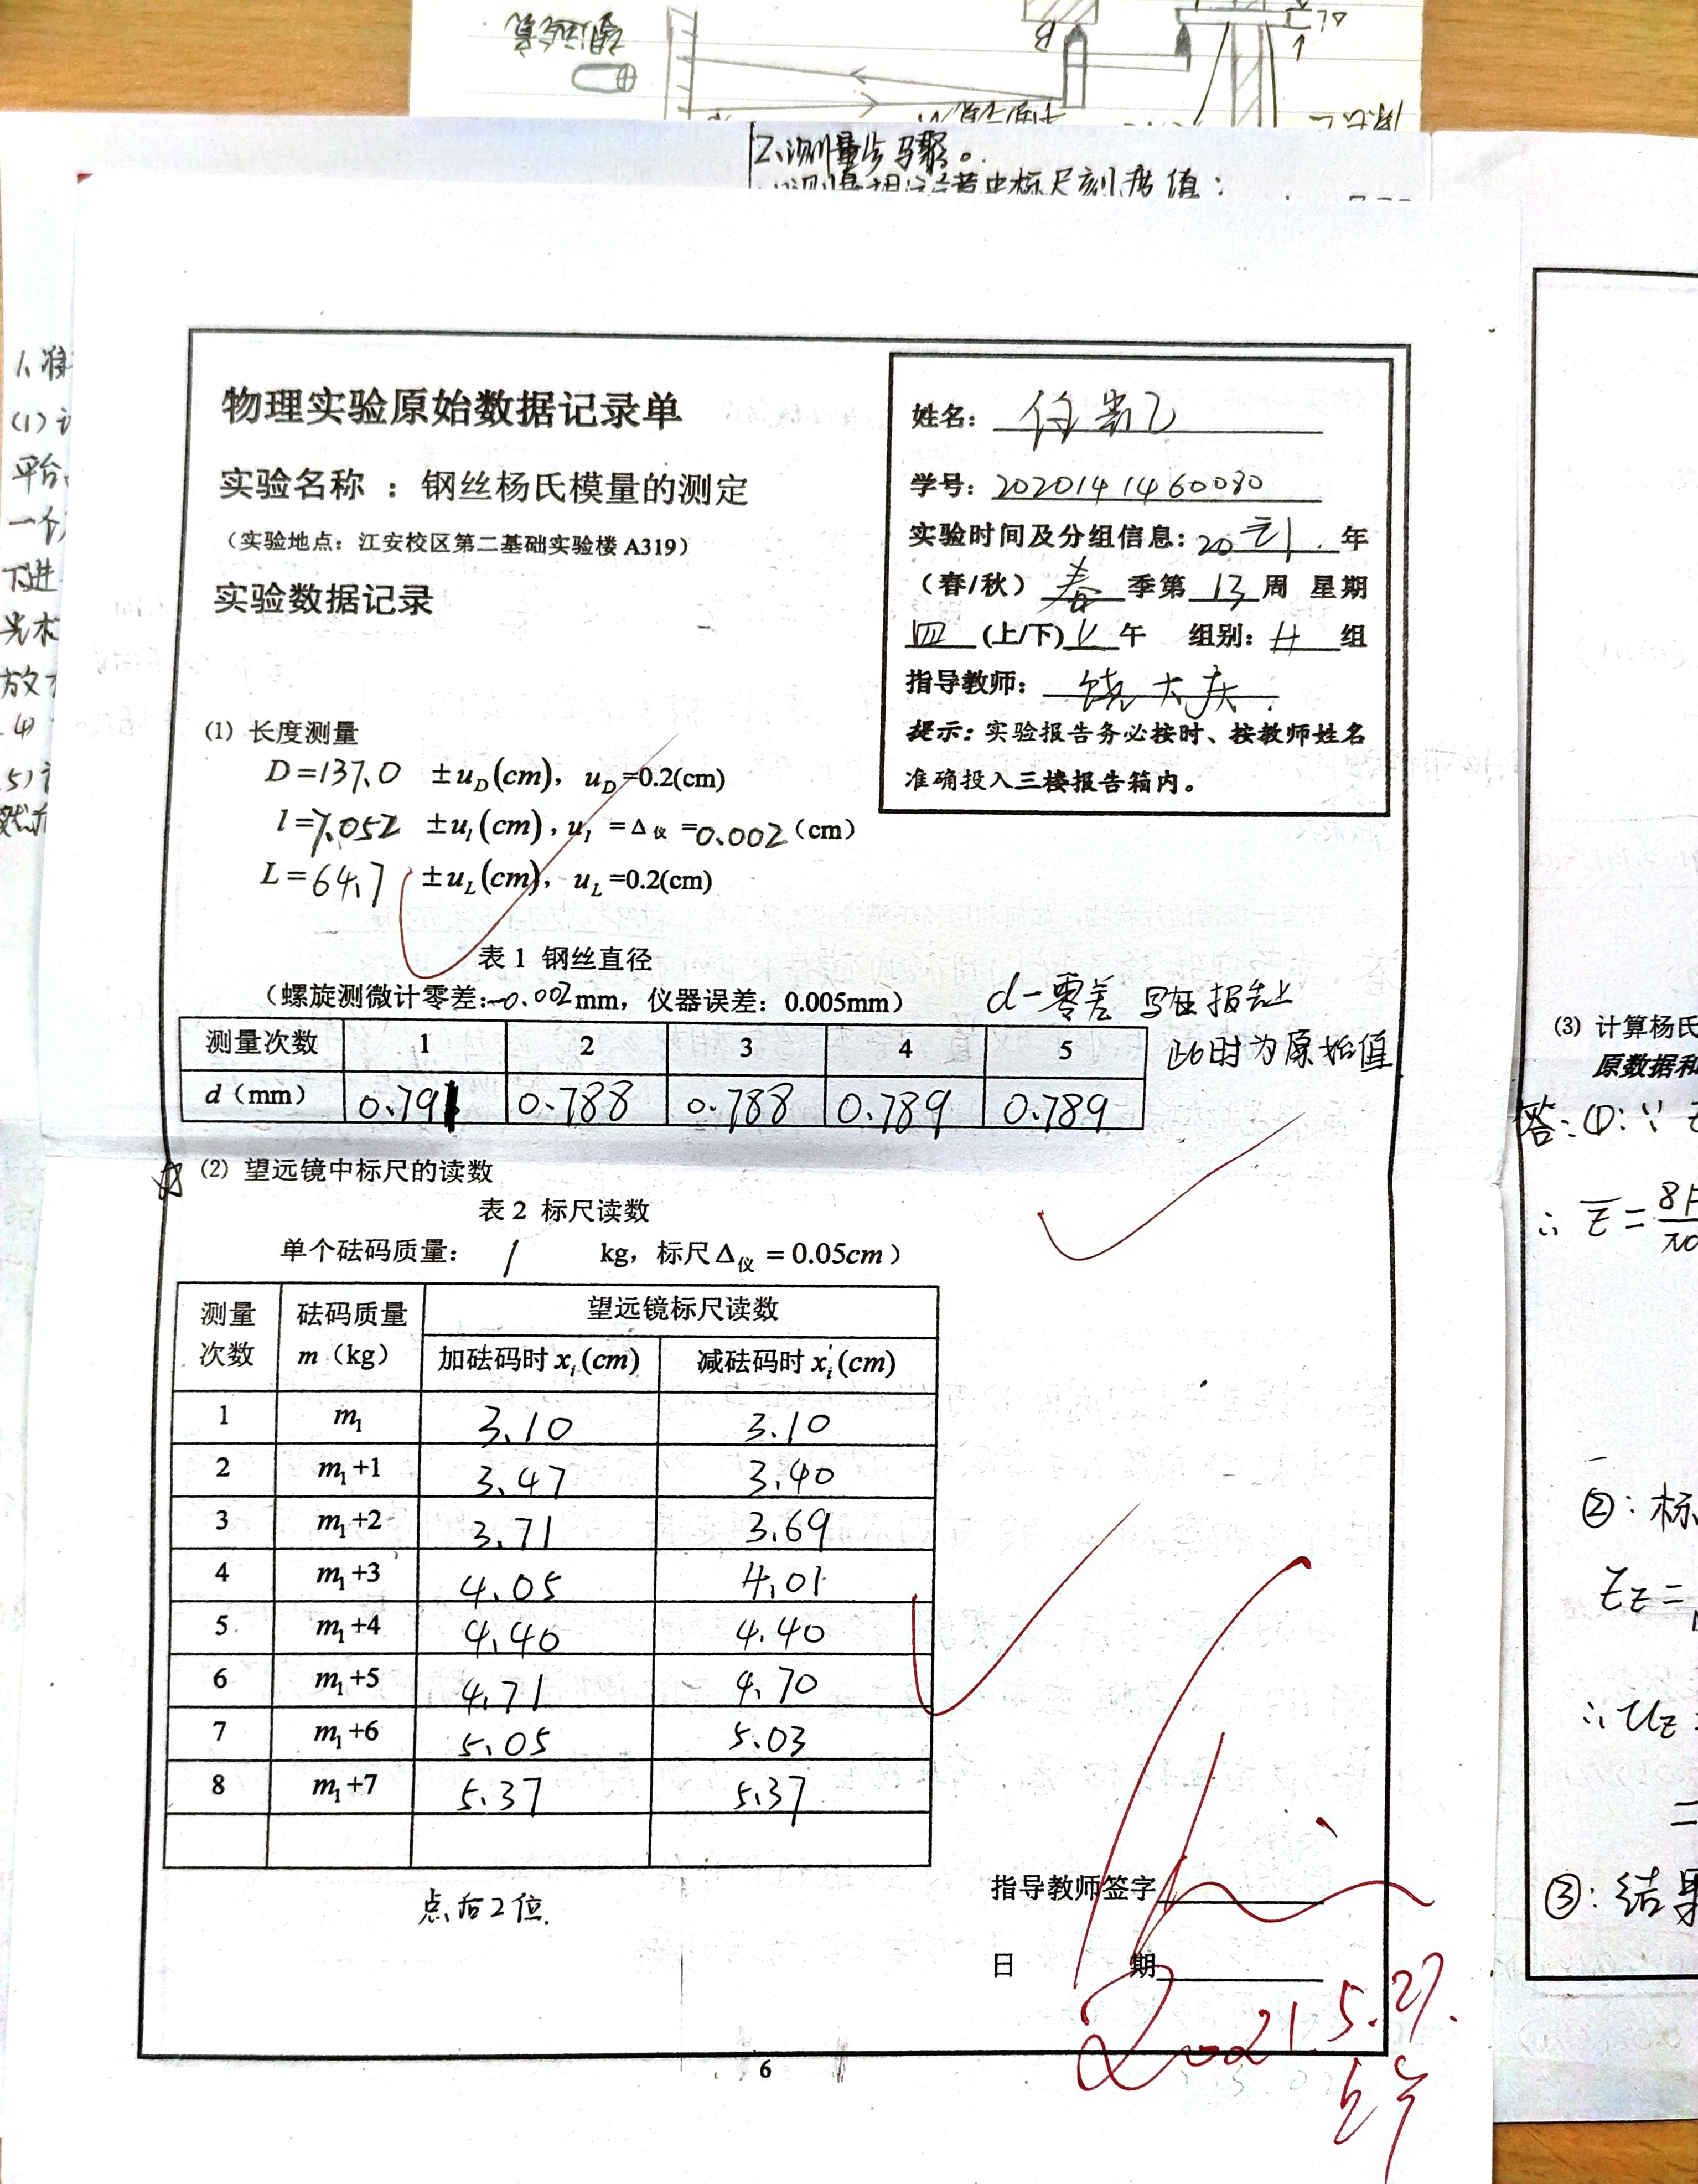 B
2、测量步骤。
物理实验原始数据记录单
实验名称 : 钢丝杨氏模量的测定
(实验地点: 江安校区第二基础实验楼 A319)
实验数据记录
姓名:
学号: 2020141460080
实验时间及分组信息: 20 年
(春/秋) 春 季第 13 周 星期
四 (上/下) 上 午 组别: 组
指导教师: 饶大庆
提示: 实验报告务必按时、按教师姓名
准确投入三楼报告箱内。
(1) 长度测量
D=137.0 ±u_D(cm), u_D=0.2(cm)
l=7.052 ±u_l(cm), u_l=Δ仪=0.002(cm)
L=64.7 ±u_L(cm), u_L=0.2(cm)
表 1 钢丝直径
(螺旋测微计零差:-0.002mm, 仪器误差: 0.005mm)
d-零差 写在报告上
此时为原始值
测量次数 1 2 3 4 5
d (mm) 0.791 0.788 0.788 0.789 0.789
(2) 望远镜中标尺的读数
表 2 标尺读数
单个砝码质量: 1 kg, 标尺Δ仪=0.05cm)
测量次数 砝码质量 m (kg) 望远镜标尺读数
加砝码时 x_i(cm) 减砝码时 x_i'(cm)
1 m₁ 3.10 3.10
2 m₁+1 3.47 3.40
3 m₁+2 3.71 3.69
4 m₁+3 4.05 4.01
5 m₁+4 4.40 4.40
6 m₁+5 4.71 4.70
7 m₁+6 5.05 5.03
8 m₁+7 5.37 5.37
点后2位.
指导教师签字
日 期
2021.5.27.
6
(3) 计算杨氏
原数据和
答:①:∵
②:标
③:结果